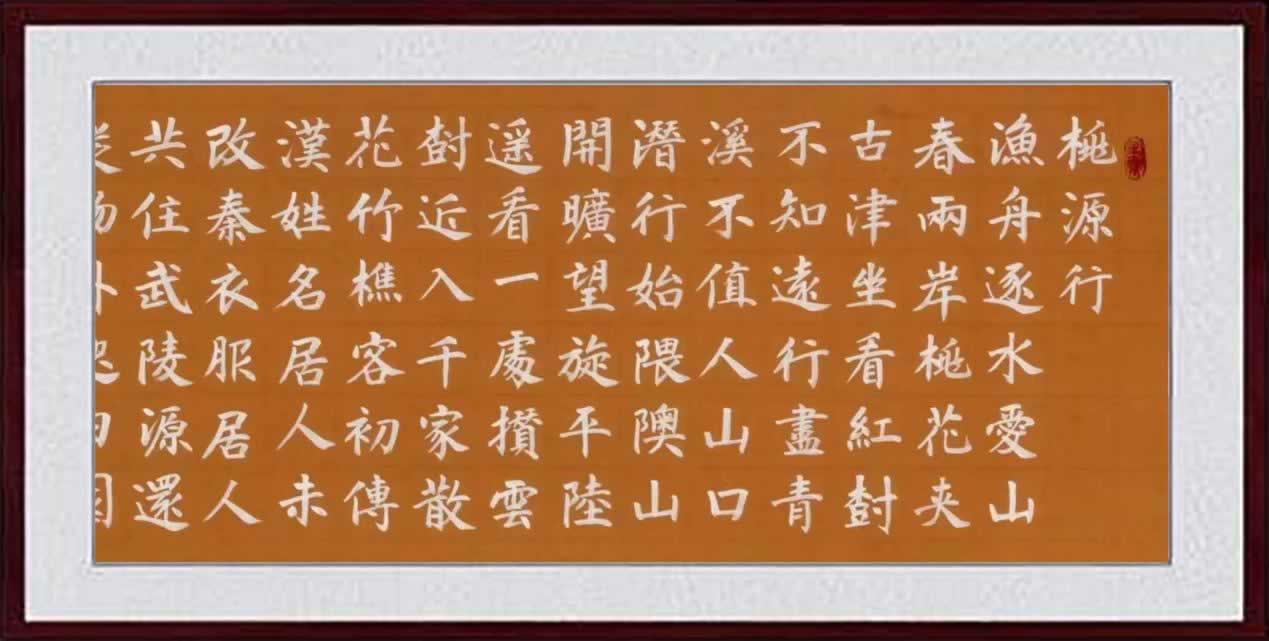 桃源行
漁舟逐水愛山
春兩岸桃花夹
古津坐看紅樹
不知遠行盡青
溪不值人山口
潛行始隈隩山
開曠望旋平陸
遥看一處攢雲
樹近入千家散
花竹樵客初傳
漢姓名居人未
改秦衣服居人
共住武陵源還